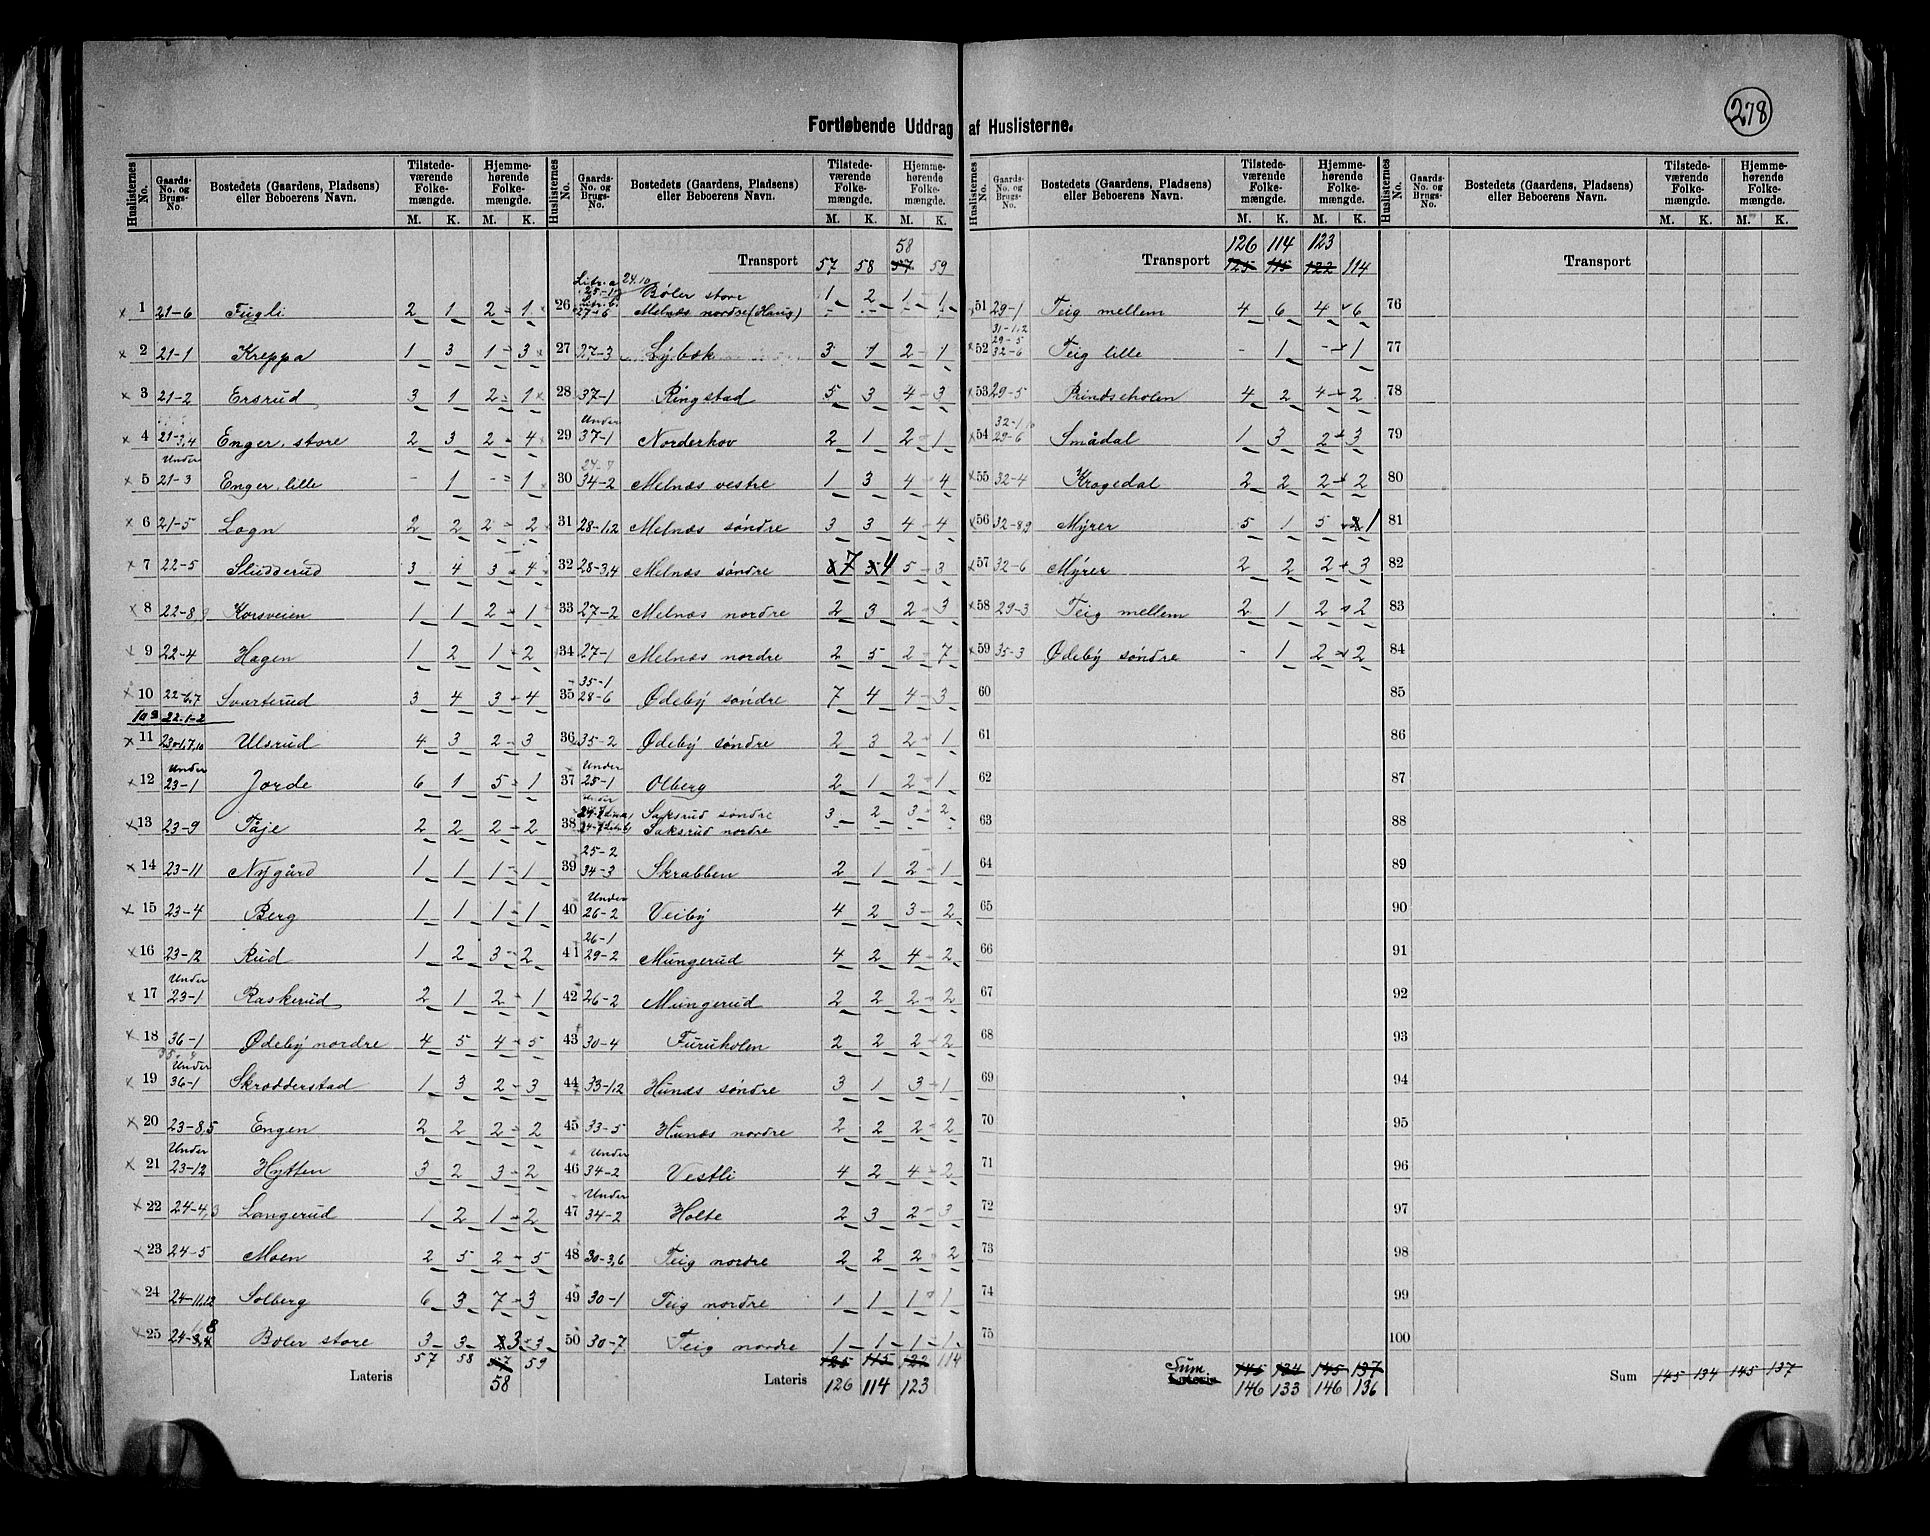 278
Fortløbende Uddrag af Huslisterne.
Huslisternes No. Gaards-No. og Brugs-No. Bostedets (Gaardens, Pladsens) eller Beboerens Navn. Tilstedeværende Folkemængde. M. K. Hjemmehørende Folkemængde. M. K.
1 21-6 Fugli 2 1 2 1
2 21-1 Kreppa 1 3 1 3
3 21-2 Ersrud 3 1 2 1
4 21-3,4 Enger, store 2 3 2 4
5 Under 21-3 Enger, lille - 1 - 1
6 21-5 Logn 2 2 2 2
7 22-5 Sludderud 3 4 3 4
8 22-8,9 Korsveien 1 1 2 1
9 22-4 Hagen 1 2 1 2
10 22-6,7 Svarterud 3 4 3 4
10a 22.1-2
11 23-1,7,10 Ulsrud 4 3 2 3
12 Under 23-1 Jorde 6 1 5 1
13 23-9 Tåje 2 2 2 2
14 23-11 Nygård 1 1 1 1
15 23-4 Berg 1 1 1 1
16 23-12 Rud 1 2 3 2
17 Under 23-1 Raskerud 2 1 2 1
18 36-1 Ødeby nordre 4 5 4 5
19 Under 36-1 Skrodderstad 1 3 2 3
20 23-8,5 Engen 2 2 2 2
21 Under 23-12 Hytten 3 2 3 2
22 24-4,3 Langerud 1 2 1 2
23 24-5 Moen 2 5 2 5
24 24-11,12 Solberg 6 3 7 3
25 24-8 Bøler store 3 3 3 3
Lateris 57 58 57 59
58
Transport 57 58 57 59
58
26 Litr. a 25-1 24.10 Bøler store 1 2 1 1
Litr. b. 27-6 Melnæs nordre (Haug) - - - -
27 27-3 Lybæk 3 1 2 1
28 37-1 Ringstad 5 3 4 3
29 Under 37-1 Norderhov 2 1 2 1
30 34-2 Melnæs vestre 1 3 4 4
31 28-1,2 Melnæs søndre 3 3 4 4
32 28-3,4 Melnæs søndre 7 4 5 3
33 27-2 Melnæs nordre 2 3 2 3
34 27-1 Melnæs nordre 2 5 2 7
35 35-1 28-6 Ødeby søndre 7 4 4 3
36 35-2 Ødeby søndre 2 3 2 1
37 Under 25-1 Olberg 2 1 2 1
38 Under Saksrud søndre 3 2 3 2
Saksrud nordre - - - -
39 25-2 34-3 Skrabben 2 1 2 1
40 Under 26-2 Veiby 4 2 3 2
41 26-1 29-2 Mungerud 4 2 4 2
42 26-2 Mungerud 2 2 2 2
43 30-4 Furuholen 2 2 2 2
44 33-1,2 Hunds søndre 3 1 3 1
45 33-5 Hunæs nordre 2 2 2 2
46 Under 34-2 Vestli 4 2 4 2
47 Under 34-2 Holte 2 3 2 3
48 30-3,6 Teig nordre 2 2 2 2
49 30-1 Teig nordre 1 1 1 1
50 30-7 Teig nordre 1 1 1 1
Lateris 125 115 122 114
126 114 123
126 114 123
Transport 125 115 122 114
51 29-1 Teig mellem 4 6 4 6
52 31-1,2 29-5 32-6 Teig lille - 1 - 1
53 29-5 Prindseholen 4 2 4 2
54 32-1 29-6 Smådal 1 3 2 3
55 32-4 Krogedal 2 2 2 2
56 32-8,9 Myrer 5 1 5 1
57 32-6 Myrer 2 2 2 3
58 29-3 Teig mellem 2 1 2 2
59 35-3 Ødeby søndre - 1 2 2
60
61
62
63
64
65
66
67
68
69
70
71
72
73
74
75
Sum Lateris 145 134 145 137
146 133 146 136
Transport
76
77
78
79
80
81
82
83
84
85
86
87
88
89
90
91
92
93
94
95
96
97
98
99
100
Sum 145 134 145 137